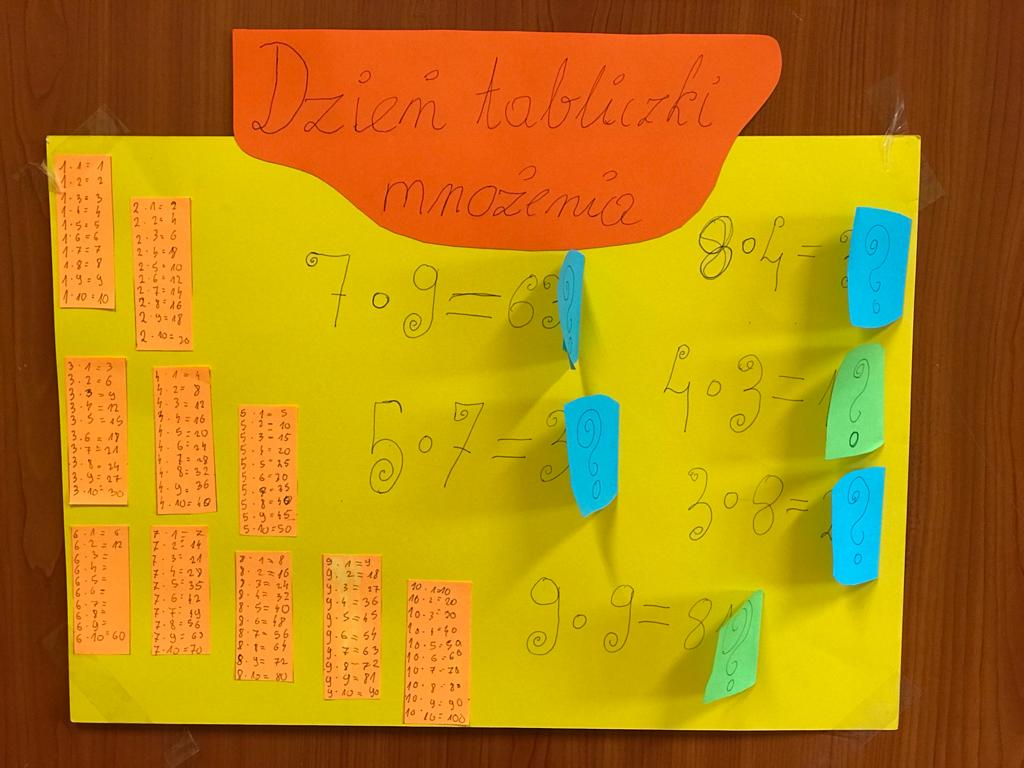 Dzień tabliczki
mnożenia
1·1=1
1·2=2
1·3=3
1·4=4
1·5=5
1·6=6
1·7=7
1·8=8
1·9=9
1·10=10
2·1=2
2·2=4
2·3=6
2·4=8
2·5=10
2·6=12
2·7=14
2·8=16
2·9=18
2·10=20
3·1=3
3·2=6
3·3=9
3·4=12
3·5=15
3·6=18
3·7=21
3·8=24
3·9=27
3·10=30
4·1=4
4·2=8
4·3=12
4·4=16
4·5=20
4·6=24
4·7=28
4·8=32
4·9=36
4·10=40
5·1=5
5·2=10
5·3=15
5·4=20
5·5=25
5·6=30
5·7=35
5·8=40
5·9=45
5·10=50
6·1=6
6·2=12
6·3=
6·4=
6·5=
6·6=
6·7=
6·8=
6·9=
6·10=60
7·1=7
7·2=14
7·3=21
7·4=28
7·5=35
7·6=42
7·7=49
7·8=56
7·9=63
7·10=70
8·1=8
8·2=16
8·3=24
8·4=32
8·5=40
8·6=48
8·7=56
8·8=64
8·9=72
8·10=80
9·1=9
9·2=18
9·3=27
9·4=36
9·5=45
9·6=54
9·7=63
9·8=72
9·9=81
9·10=90
10·1=10
10·2=20
10·3=30
10·4=40
10·5=50
10·6=60
10·7=70
10·8=80
10·9=90
10·10=100
7·9=63 ?
5·7=3 ?
9·9=8 ?
8·4= ?
4·3=1 ?
3·8=2 ?